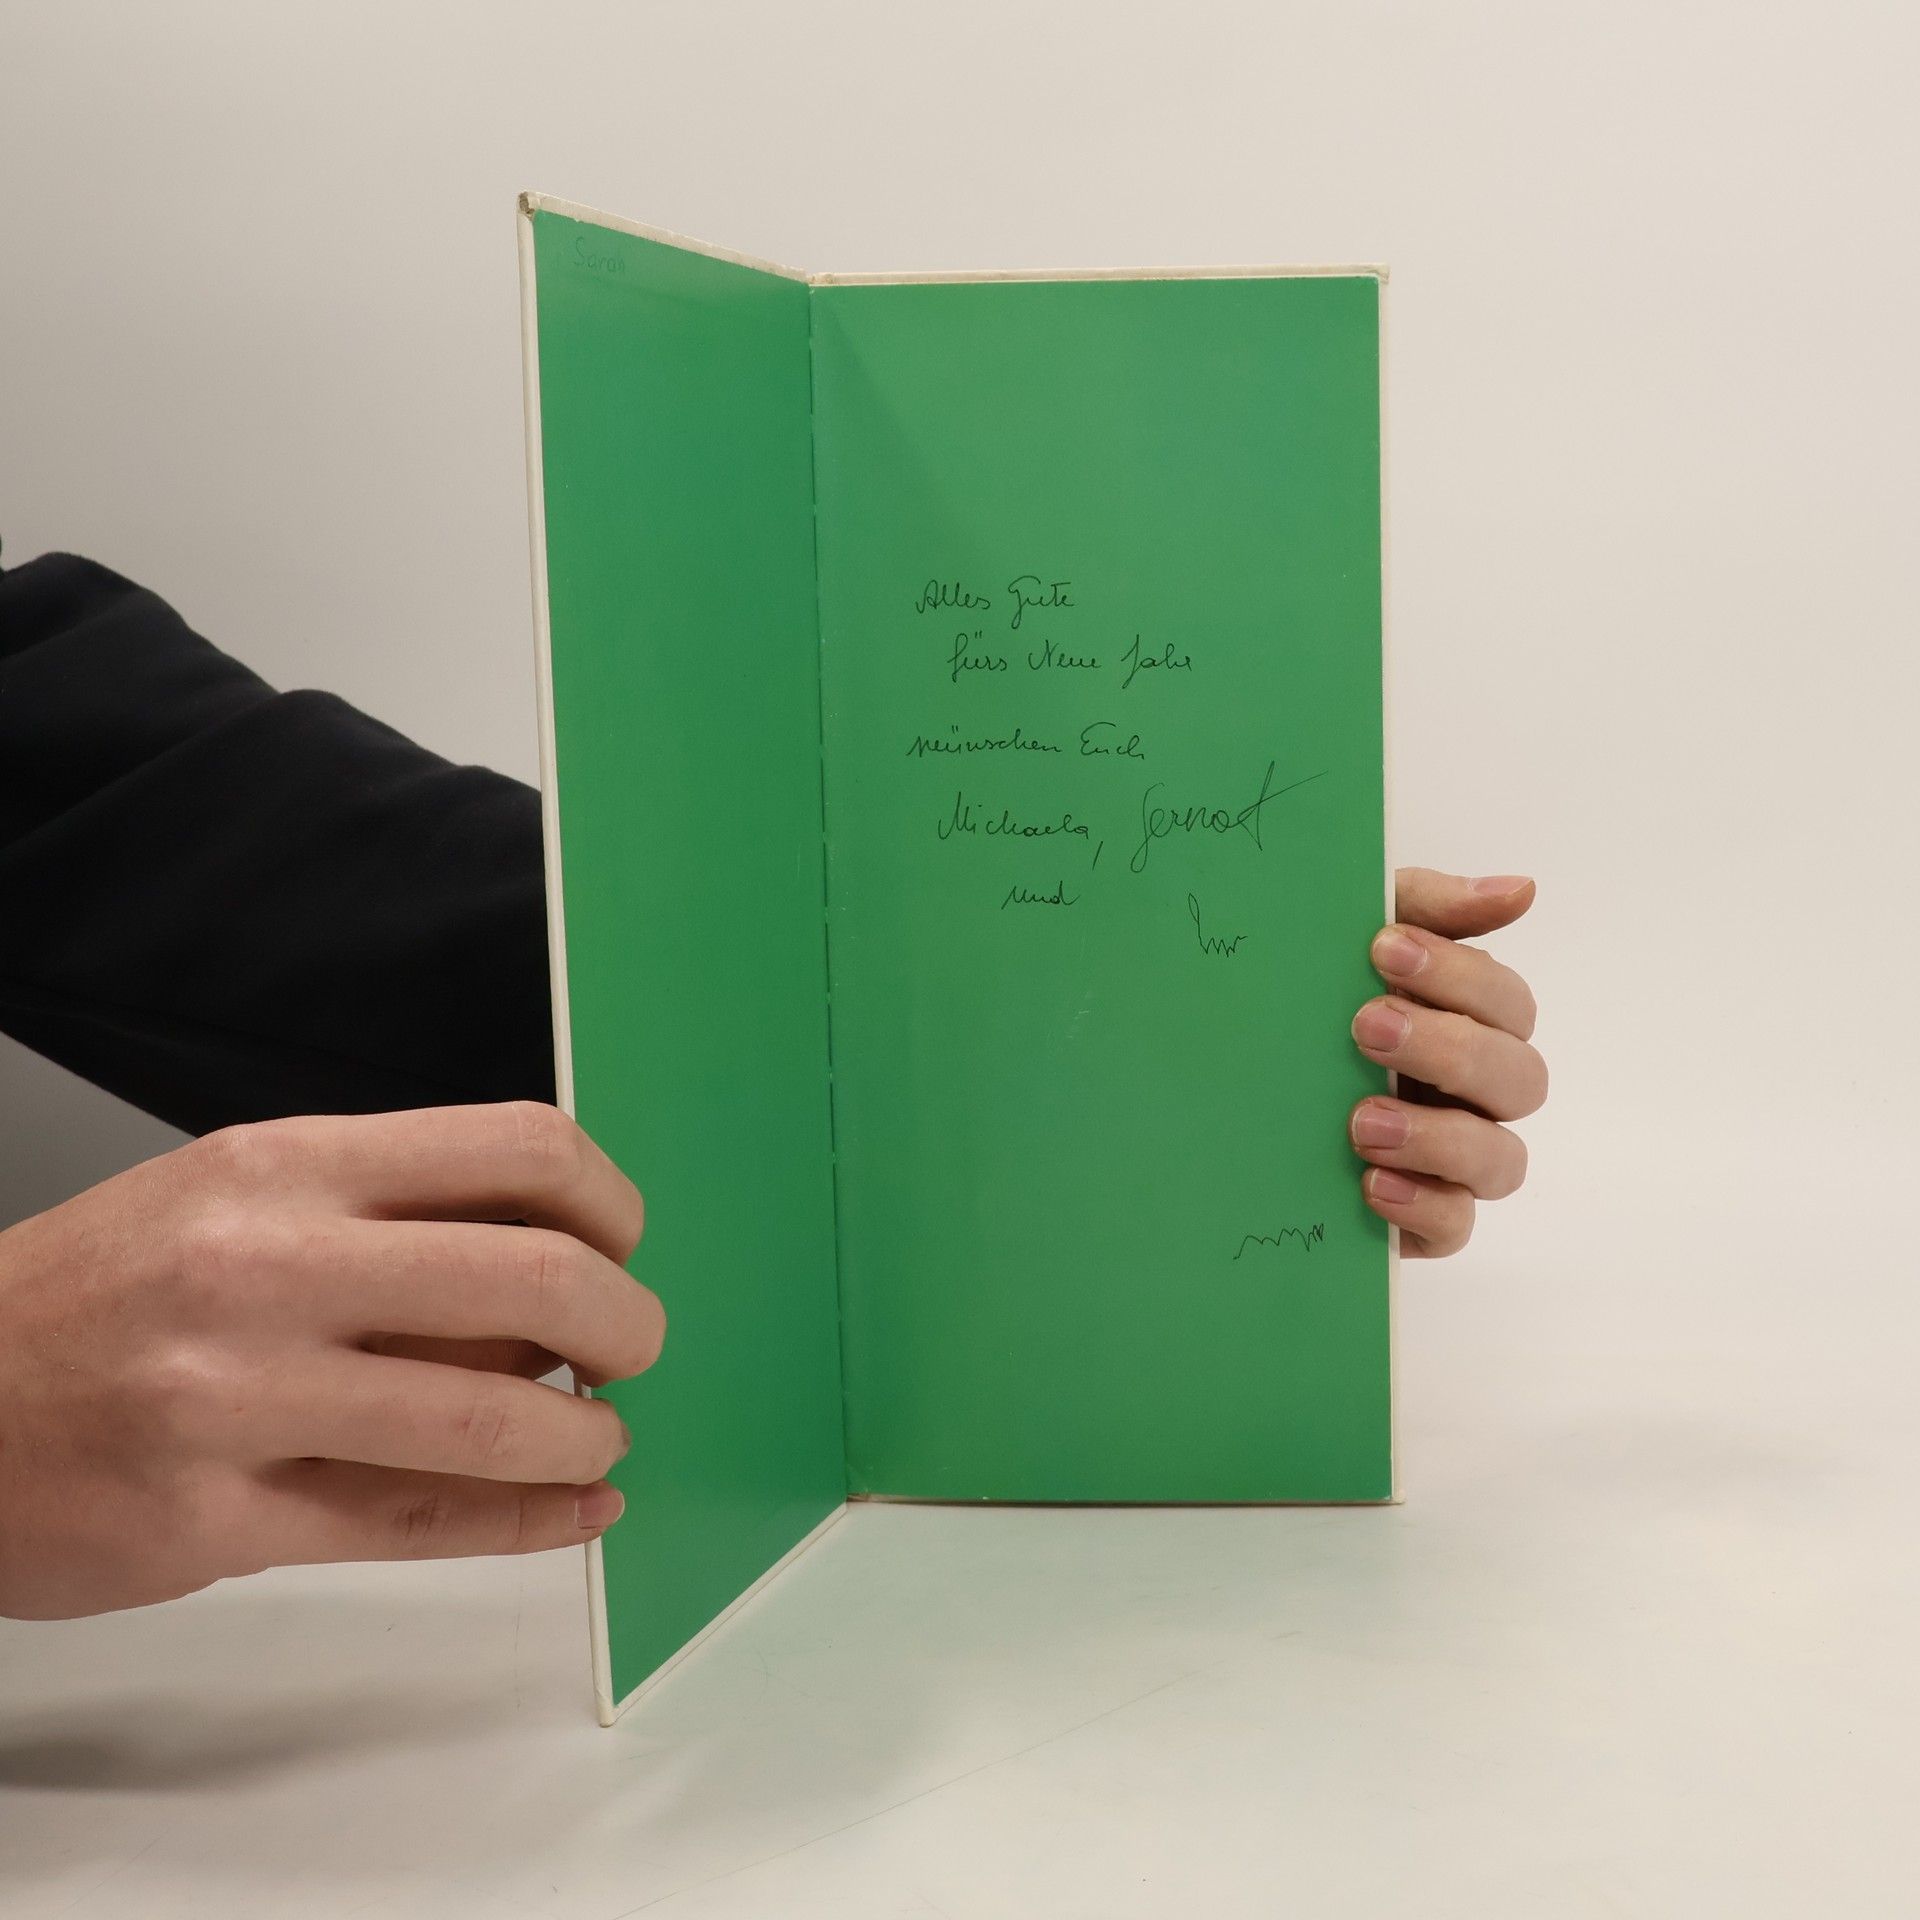 Sarah
Alles Gute
fürs Neue Jahr
wünschen Euch
Michaela, Gernot
und